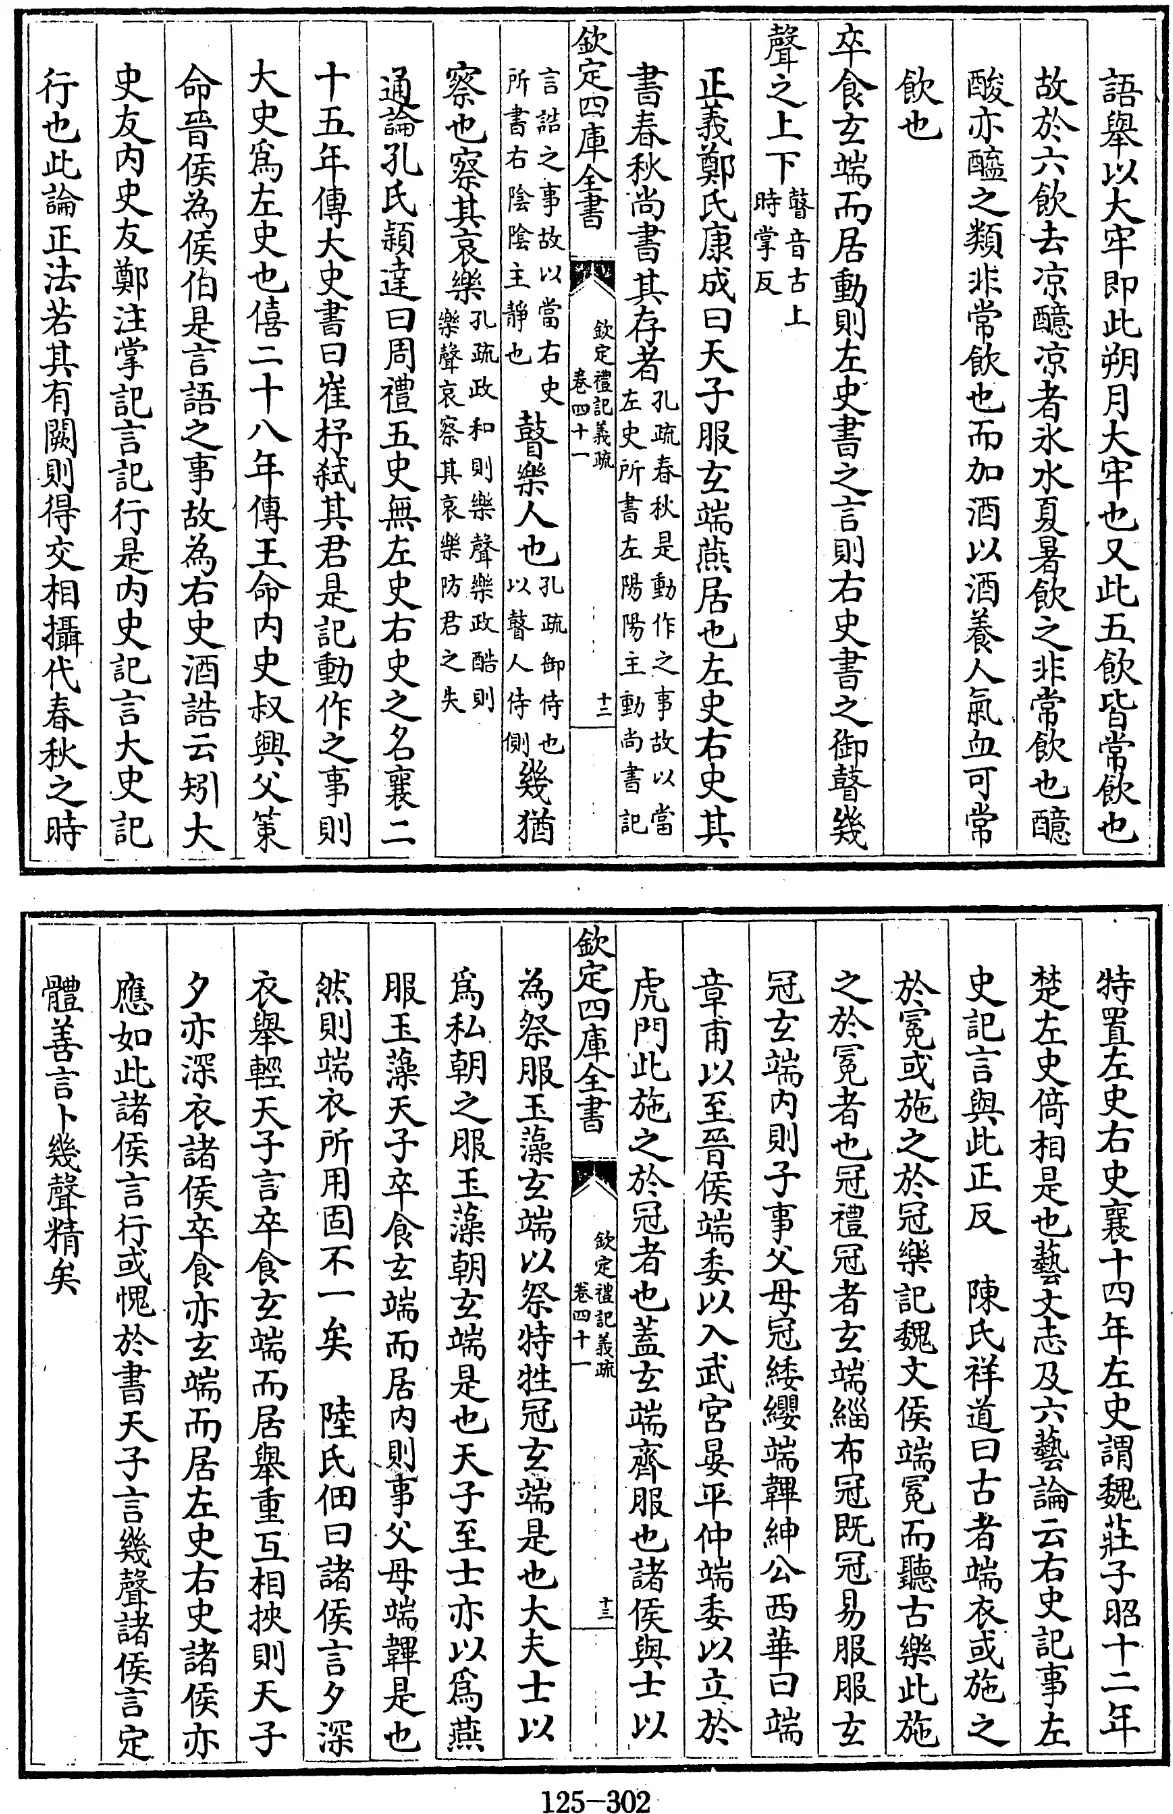 語舉以大牢即此朔月大牢也又此五飲皆常飲也
故於六飲去凉醷凉者氷水夏暑飲之非常飲也醷
酸亦醯之類非常飲也而加酒以酒養人氣血可常
飲也
卒食玄端而居動則左史書之言則右史書之御瞽幾
聲之上下瞽音古上時掌反
正義鄭氏康成曰天子服玄端燕居也左史右史其
書春秋尚書其存者孔疏春秋是動作之事故以當左史所書左陽陽主動尚書記
欽定四庫全書
欽定禮記義疏
卷四十一
十二
言誥之事故以當右史所書右陰陰主靜也瞽樂人也孔疏御侍也以瞽人侍側幾猶
察也察其哀樂孔疏政和則樂聲樂政酷則樂聲哀察其哀樂防君之失
通論孔氏穎達曰周禮五史無左史右史之名襄二
十五年傳大史書曰崔杼弑其君是記動作之事則
大史爲左史也僖二十八年傳王命内史叔興父策
命晉侯為侯伯是言語之事故為右史酒誥云矧大
史友内史友鄭注掌記言記行是内史記言大史記
行也此論正法若其有闕則得交相攝代春秋之時
特置左史右史襄十四年左史謂魏莊子昭十二年
楚左史倚相是也藝文志及六藝論云右史記事左
史記言與此正反　陳氏祥道曰古者端衣或施之
於冕或施之於冠樂記魏文侯端冕而聽古樂此施
之於冕者也冠禮冠者玄端緇布冠既冠易服服玄
冠玄端内則子事父母冠緌纓端韠紳公西華曰端
章甫以至晉侯端委以入武宮晏平仲端委以立於
虎門此施之於冠者也蓋玄端齊服也諸侯與士以
欽定四庫全書
欽定禮記義疏
卷四十一
十三
為祭服玉藻玄端以祭特牲冠玄端是也大夫士以
爲私朝之服玉藻朝玄端是也天子至士亦以爲燕
服玉藻天子卒食玄端而居内則事父母端韠是也
然則端衣所用固不一矣　陸氏佃曰諸侯言夕深
衣舉輕天子言卒食玄端而居舉重互相挾則天子
夕亦深衣諸侯卒食亦玄端而居左史右史諸侯亦
應如此諸侯言行或愧於書天子言幾聲諸侯言定
體善言卜幾聲精矣
125-302